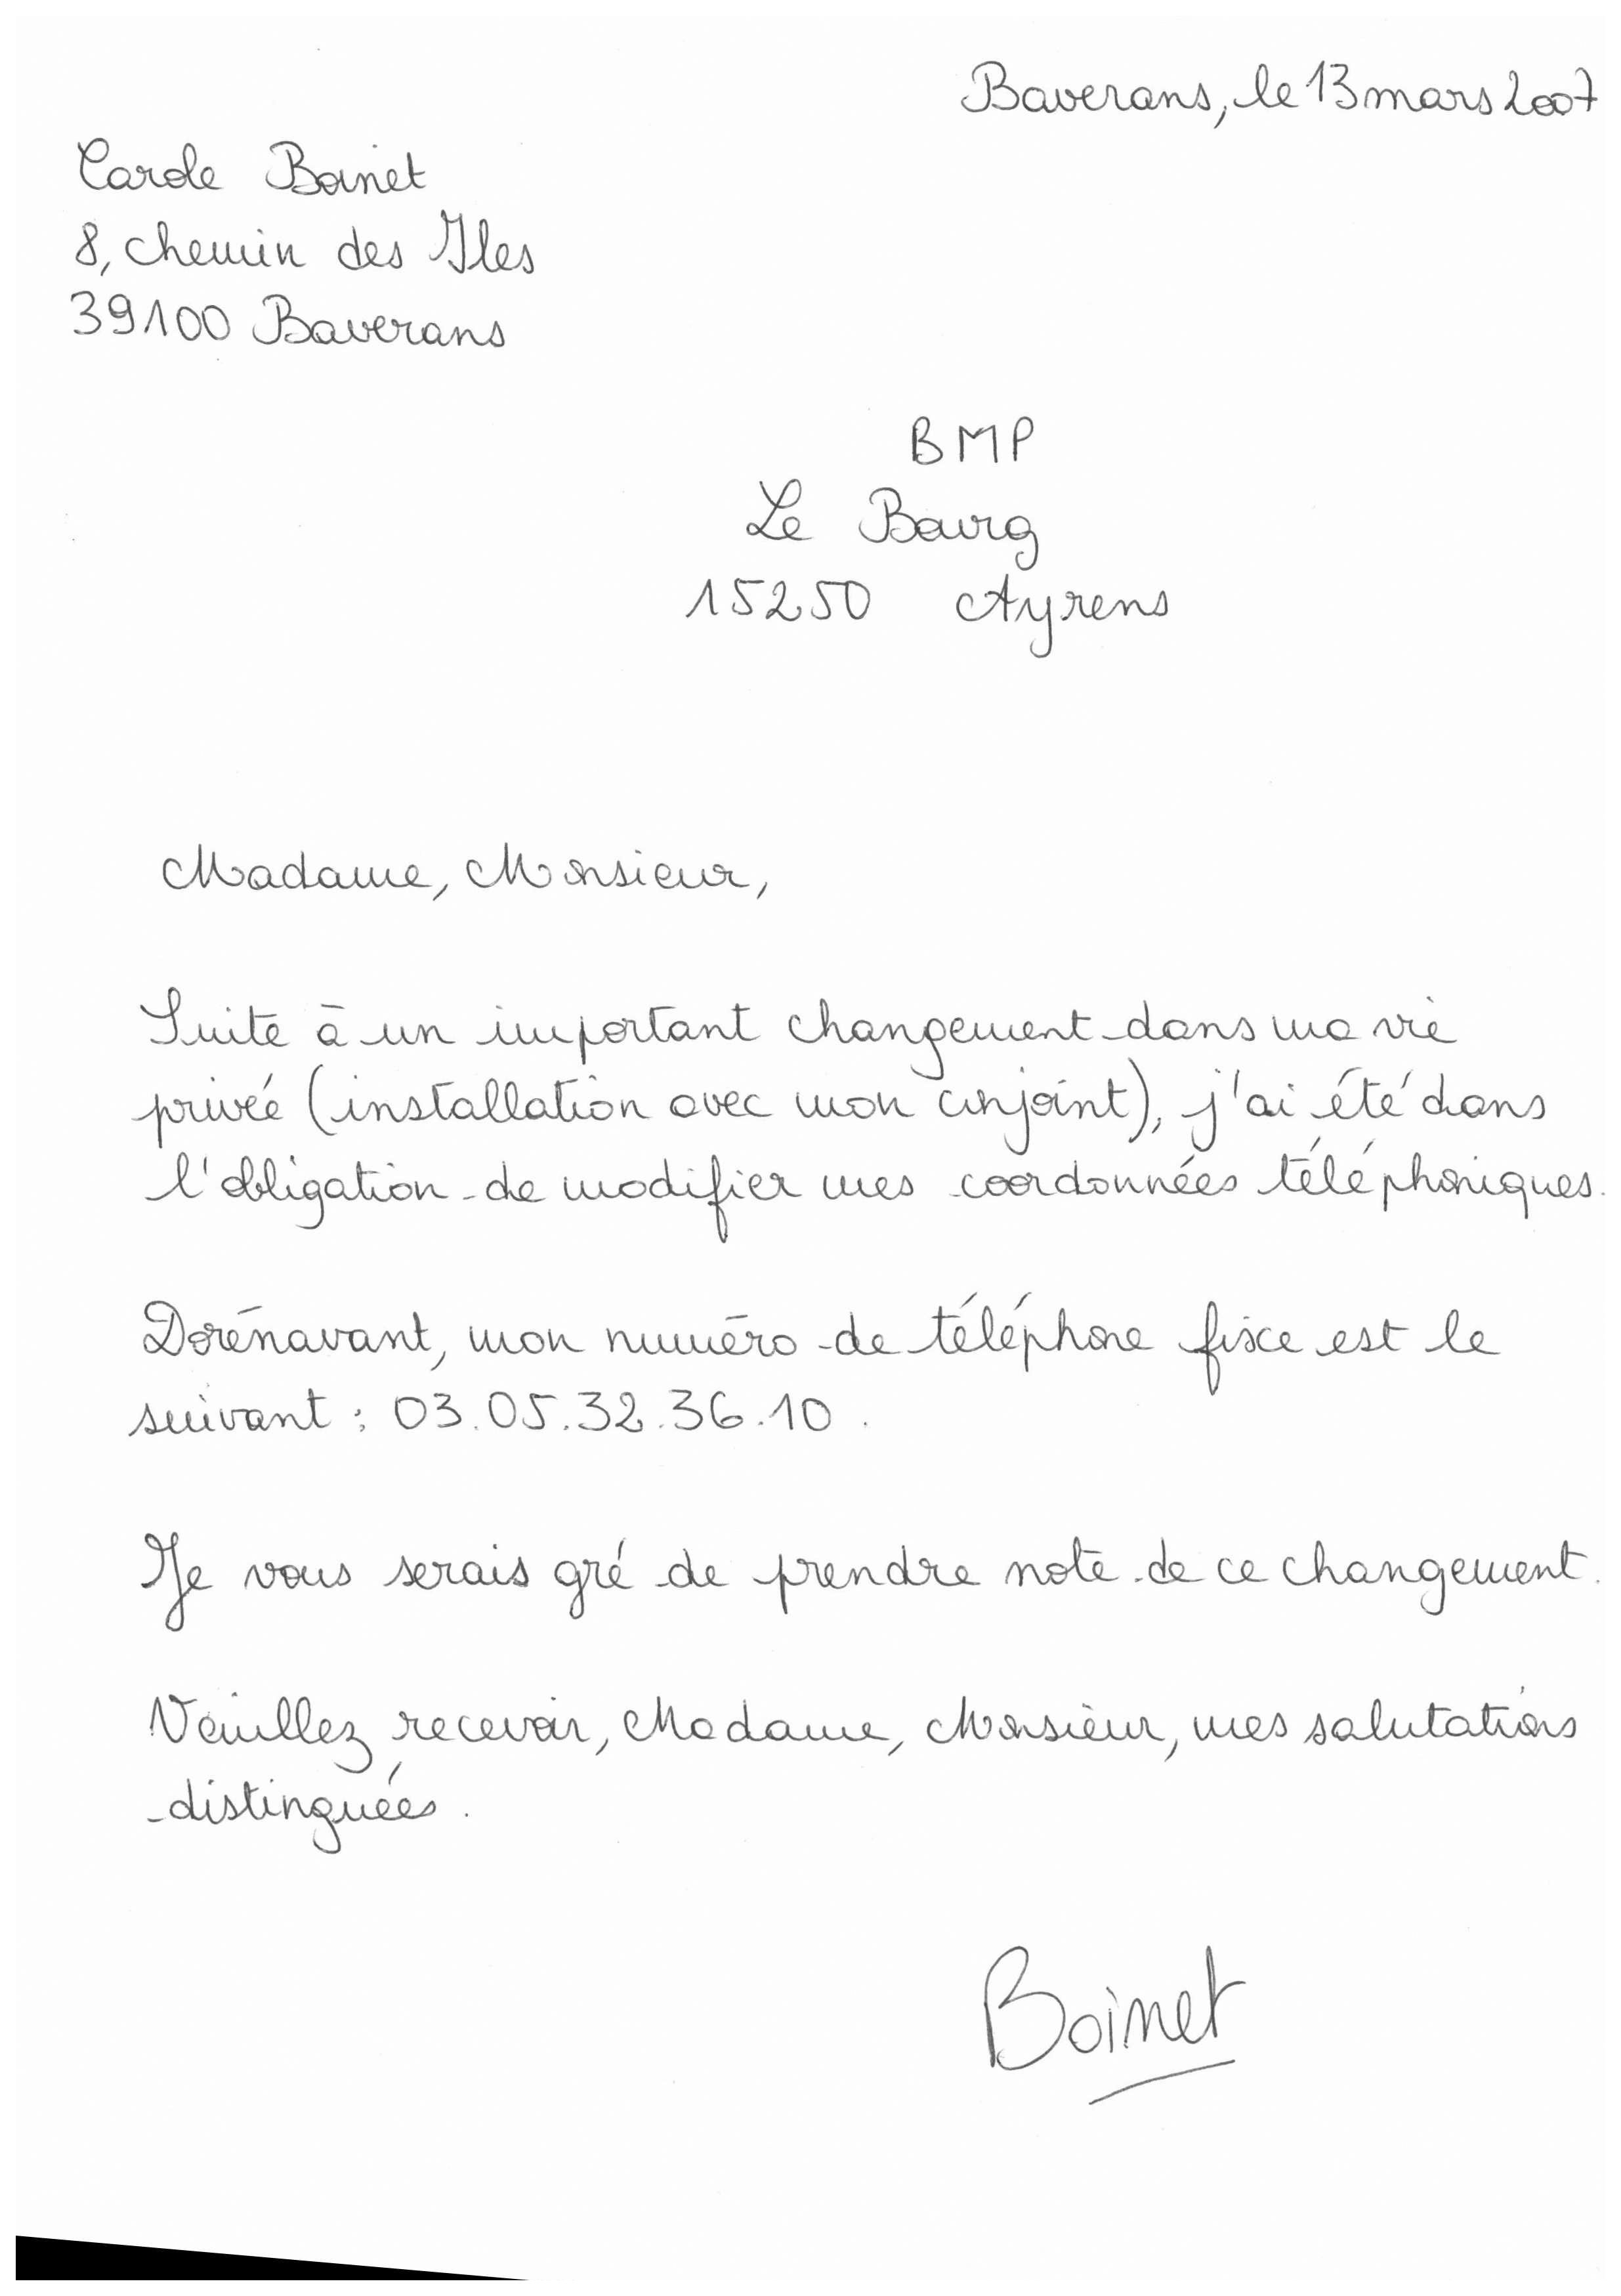 Baverans, le 13 mars 2007
Carole Boinet
8, chemin des Iles
39100 Baverans
BMP
Le Bourg
15250 Ayrens
Madame, Monsieur,
Suite à un important changement dans ma vie
privée (installation avec mon conjoint), j'ai été dans
l'obligation de modifier mes coordonnées téléphoniques.
Dorénavant, mon numéro de téléphone fixe est le
suivant : 03.05.32.36.10.
Je vous serais gré de prendre note de ce changement.
Veuillez recevoir, Madame, Monsieur, mes salutations
distinguées.
Boinet